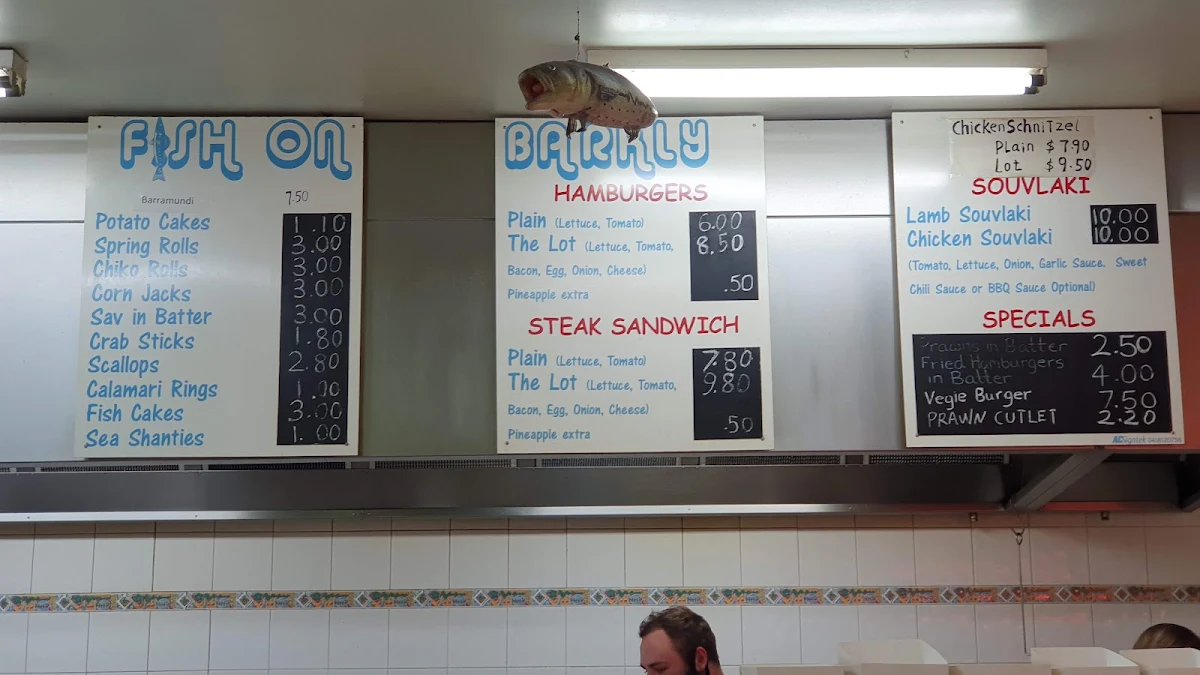 FISH ON
Barramundi 7.50
Potato Cakes 1.10
Spring Rolls 3.00
Chiko Rolls 3.00
Corn Jacks 3.00
Sav in Batter 3.00
Crab Sticks 1.80
Scallops 2.80
Calamari Rings 1.00
Fish Cakes 3.00
Sea Shanties 1.00
BARKLY
HAMBURGERS
Plain (Lettuce, Tomato) 6.00
The Lot (Lettuce, Tomato, 8.50
Bacon, Egg, Onion, Cheese)
Pineapple extra .50
STEAK SANDWICH
Plain (Lettuce, Tomato) 7.80
The Lot (Lettuce, Tomato, 9.80
Bacon, Egg, Onion, Cheese)
Pineapple extra .50
ChickenSchniTzel
PLain $7.90
LoT $9.50
SOUVLAKI
Lamb Souvlaki 10.00
Chicken Souvlaki 10.00
(Tomato, Lettuce, Onion, Garlic Sauce. Sweet
Chili Sauce or BBQ Sauce Optional)
SPECIALS
Prawns in Batter 2.50
Fried Hamburgers
in Batter 4.00
Vegie Burger 7.50
PRAWN CUTLET 2.20